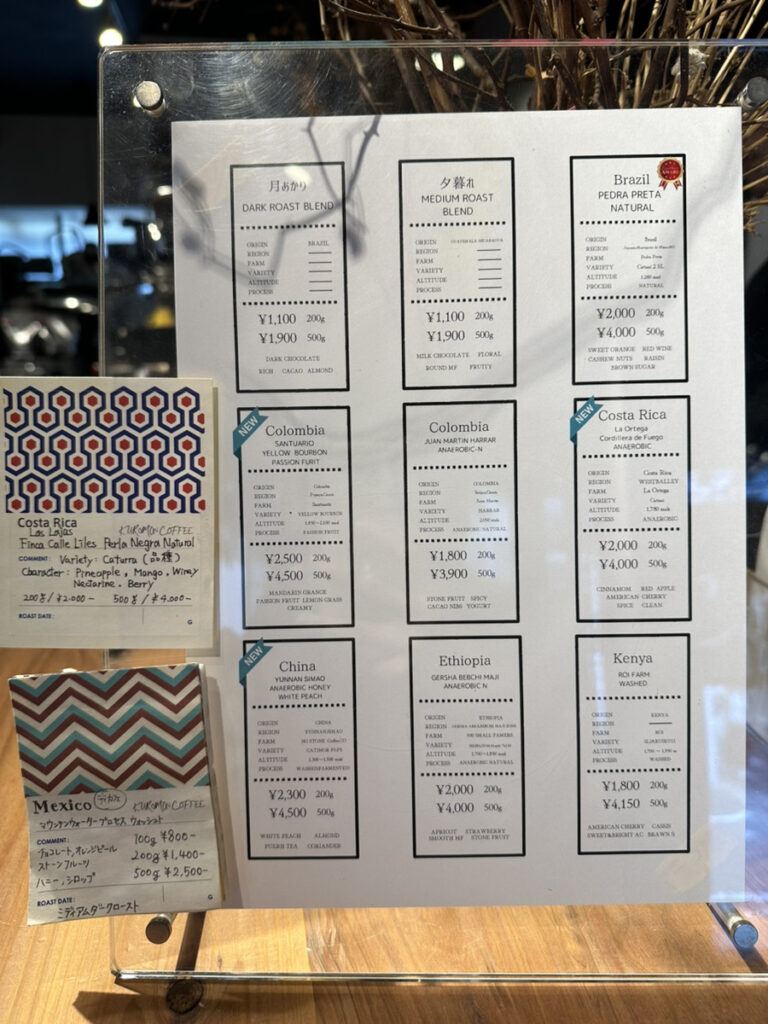 月あかり
DARK ROAST BLEND
ORIGIN BRAZIL
REGION
FARM
VARIETY
ALTITUDE
PROCESS
¥1,100 200g
¥1,900 500g
DARK CHOCOLATE
RICH CACAO ALMOND
夕暮れ
MEDIUM ROAST
BLEND
ORIGIN GUATEMALA NICARAGUA
REGION
FARM
VARIETY
ALTITUDE
PROCESS
¥1,100 200g
¥1,900 500g
MILK CHOCOLATE FLORAL
ROUND MF FRUITY
Brazil
PEDRA PRETA
NATURAL
ORIGIN Brazil
REGION
FARM Pedra Preta
VARIETY
ALTITUDE
PROCESS NATURAL
¥2,000 200g
¥4,000 500g
SWEET ORANGE RED WINE
CASHEW NUTS RAISIN
BROWN SUGAR
NEW
Colombia
SANTUARIO
YELLOW BOURBON
PASSION FURIT
ORIGIN Colombia
REGION
FARM Santuario
VARIETY YELLOW BOURBON
ALTITUDE
PROCESS PASSION FRUIT
¥2,500 200g
¥4,500 500g
MANDARIN ORANGE
PASSION FRUIT LEMON GRASS
CREAMY
Colombia
JUAN MARTIN HARRAR
ANAEROBIC-N
ORIGIN COLOMBIA
REGION
FARM
VARIETY HARRAR
ALTITUDE
PROCESS ANAEROBIC NATURAL
¥1,800 200g
¥3,900 500g
STONE FRUIT SPICY
CACAO NIBS YOGURT
NEW
Costa Rica
La Ortega
Cordillera de Fuego
ANAEROBIC
ORIGIN Costa Rica
REGION WESTBALLEY
FARM La Ortega
VARIETY Catuai
ALTITUDE 1,780 masl
PROCESS ANAEROBIC
¥2,000 200g
¥4,000 500g
CINNAMOM RED APPLE
AMERICAN CHERRY
SPICE CLEAN
NEW
China
YUNNAN SIMAO
ANAEROBIC HONEY
WHITE PEACH
ORIGIN CHINA
REGION
FARM
VARIETY
ALTITUDE
PROCESS
¥2,300 200g
¥4,500 500g
WHITE PEACH ALMOND
PUERH TEA CORIANDER
Ethiopia
GERSHA BEBCHI MAJI
ANAEROBIC N
ORIGIN ETHIOPIA
REGION
FARM
VARIETY
ALTITUDE
PROCESS ANAEROBIC NATURAL
¥2,000 200g
¥4,000 500g
APRICOT STRAWBERRY
SMOOTH MF STONE FRUIT
Kenya
ROI FARM
WASHED
ORIGIN KENYA
REGION
FARM ROI
VARIETY
ALTITUDE
PROCESS WASHED
¥1,800 200g
¥4,150 500g
AMERICAN CHERRY CASSIS
SWEET&BRIGHT AC BRAWN S
Costa Rica
Las Lajas KUROMON COFFEE
Finca Calle Liles Perla Negra Natural
COMMENT: Variety: Caturra (品種)
Character: Pineapple, Mango, Winey
Nectarine, Berry
200g/¥2,000- 500g/¥4,000-
ROAST DATE: G
Mexico デカフェ KUROMON COFFEE
マウンテンウォータープロセス ウォッシュト
COMMENT: 100g ¥800-
チョコレート,オレンジピール 200g ¥1,400-
ストーンフルーツ 500g ¥2,500-
ハニー,シロップ
ROAST DATE: G
ミディアムダークロースト